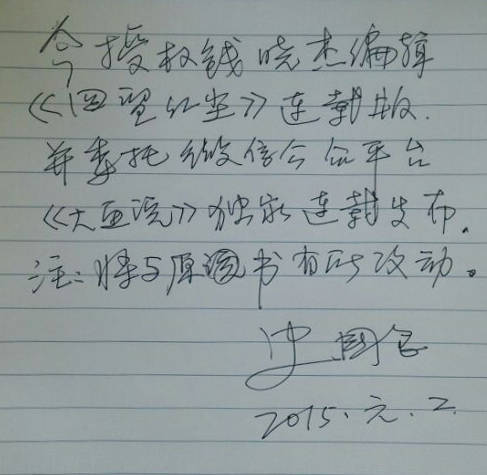 今授权钱晓杰编辑
《回望红尘》连载版.
并委托微信公众平台
《大亚湾》独家连载发布.
注:将与原书有所改动。
史国
2015.元.2.